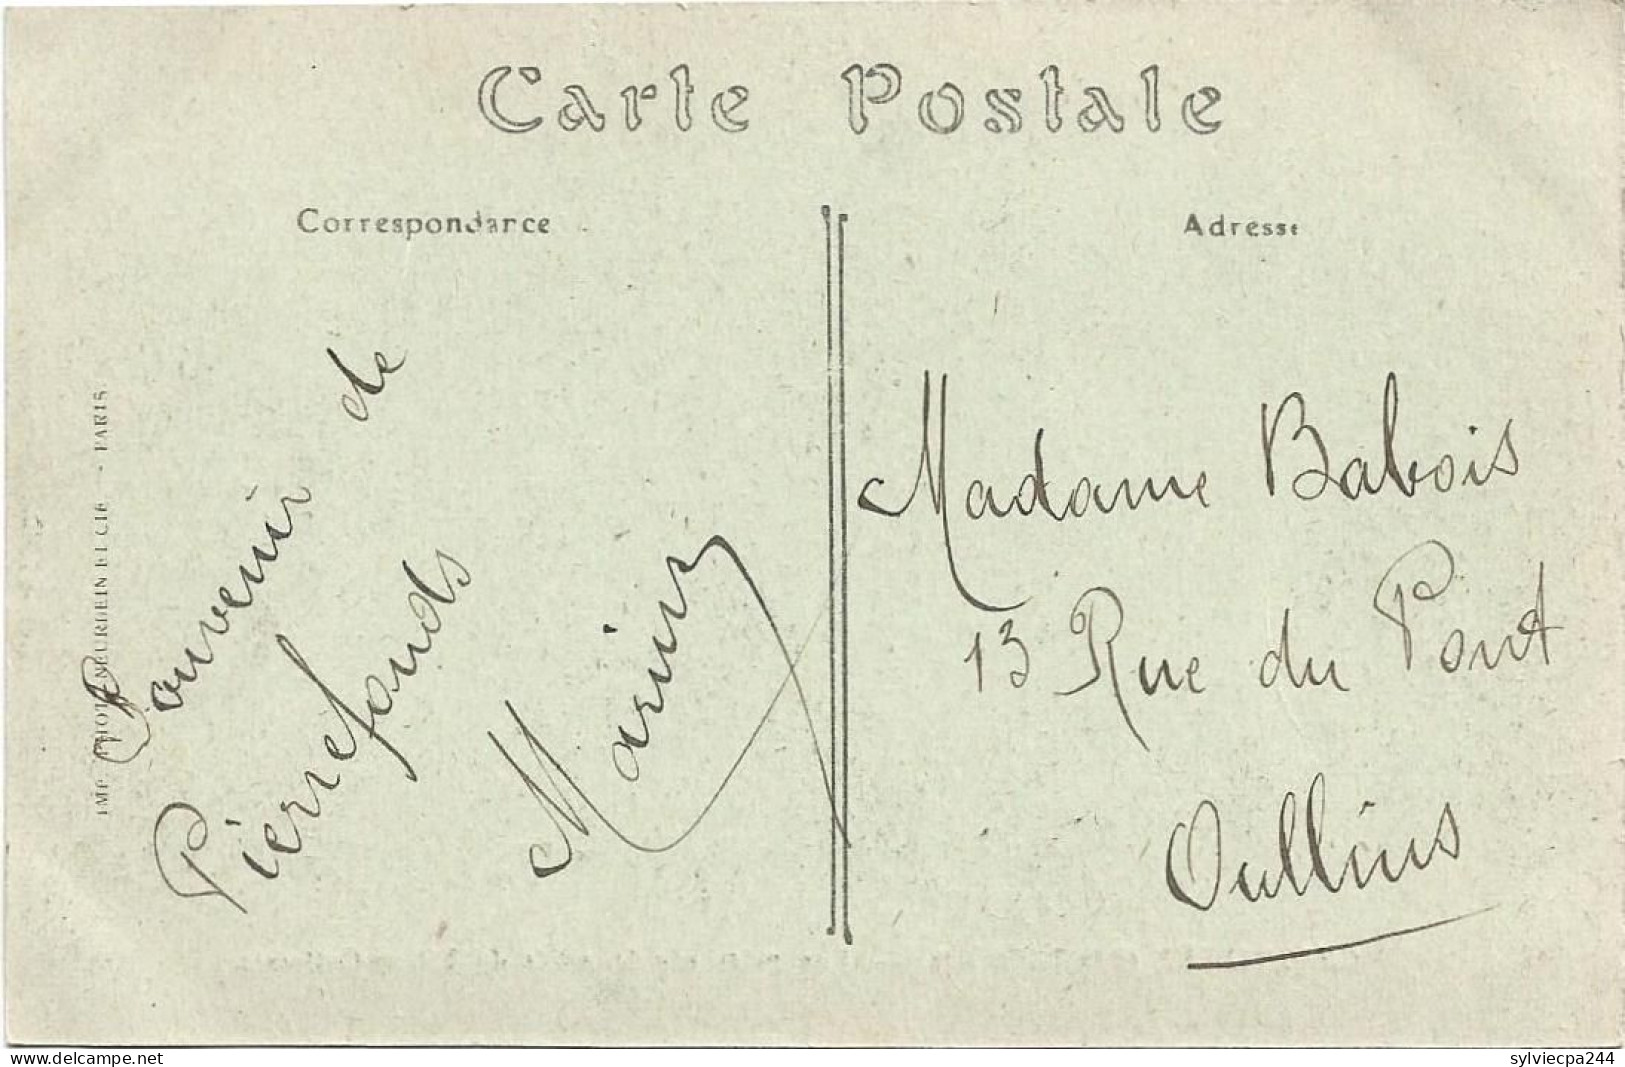 Carte Postale
Correspondance
Adresse
IMP. PHOT. NEURDEIN ET CIE. - PARIS
Souvenir de
Pierrefonds
Madame Babois
13 Rue du Pont
Oullins
www.delcampe.net
sylviecpa244